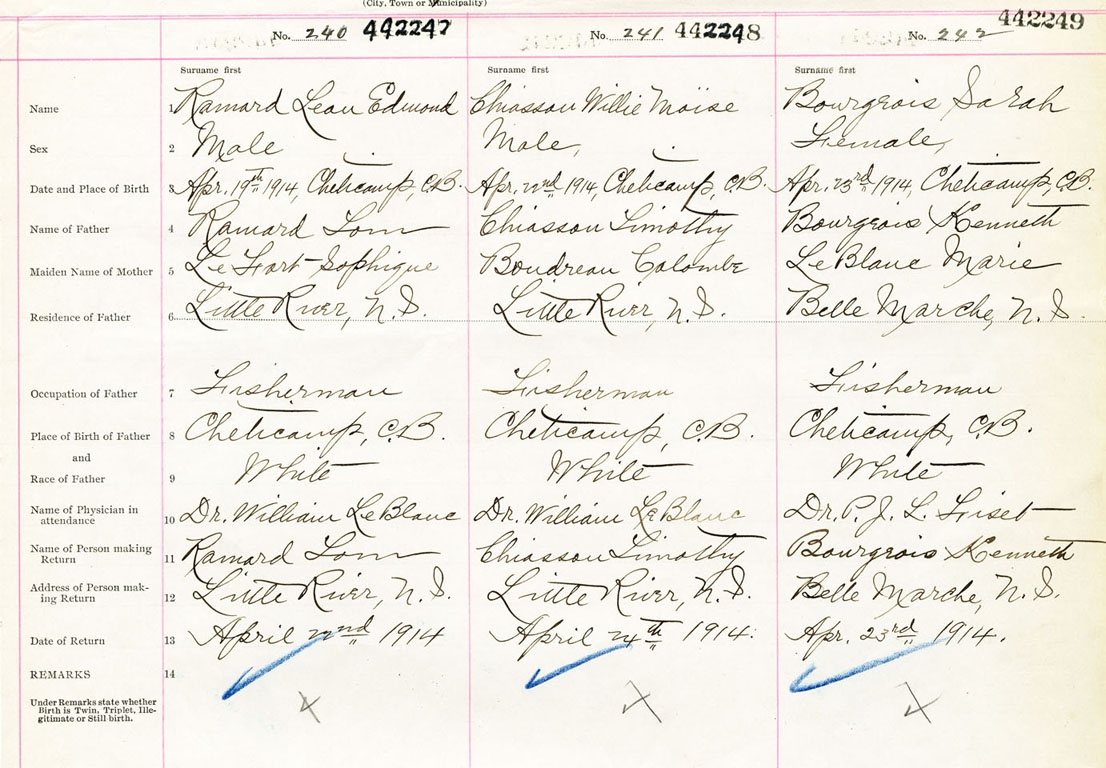 (City, Town or Municipality)
No. 240 442247 No. 241 442248 No. 242 442249
Surname first Surname first Surname first
Name 1 Ramard Leon Edmond Chiasson Willie Moïse Bourgeois Sarah
Sex 2 Male Male, Female,
Date and Place of Birth 3 Apr. 19th 1914, Cheticamp, C.B. Apr. 22nd 1914, Cheticamp, C.B. Apr. 23rd 1914, Cheticamp, C.B.
Name of Father 4 Ramard Tom Chiasson Timothy Bourgeois Kenneth
Maiden Name of Mother 5 Le Fort Sophique Boudreau Colombe LeBlanc Marie
Residence of Father 6 Little River, N.S. Little River, N.S. Belle Marche, N.S.
Occupation of Father 7 Fisherman Fisherman Fisherman
Place of Birth of Father 8 Cheticamp, C.B. Cheticamp, C.B. Cheticamp, C.B.
and
Race of Father 9 White White White
Name of Physician in
attendance 10 Dr. William LeBlanc Dr. William LeBlanc Dr. P. J. L. Fiset
Name of Person making
Return 11 Ramard Tom Chiasson Timothy Bourgeois Kenneth
Address of Person mak-
ing Return 12 Little River, N.S. Little River, N.S. Belle Marche, N.S.
Date of Return 13 April 22nd 1914 April 24th 1914. Apr. 23rd 1914.
REMARKS 14
Under Remarks state whether
Birth is Twin, Triplet, Ille-
gitimate or Still birth.